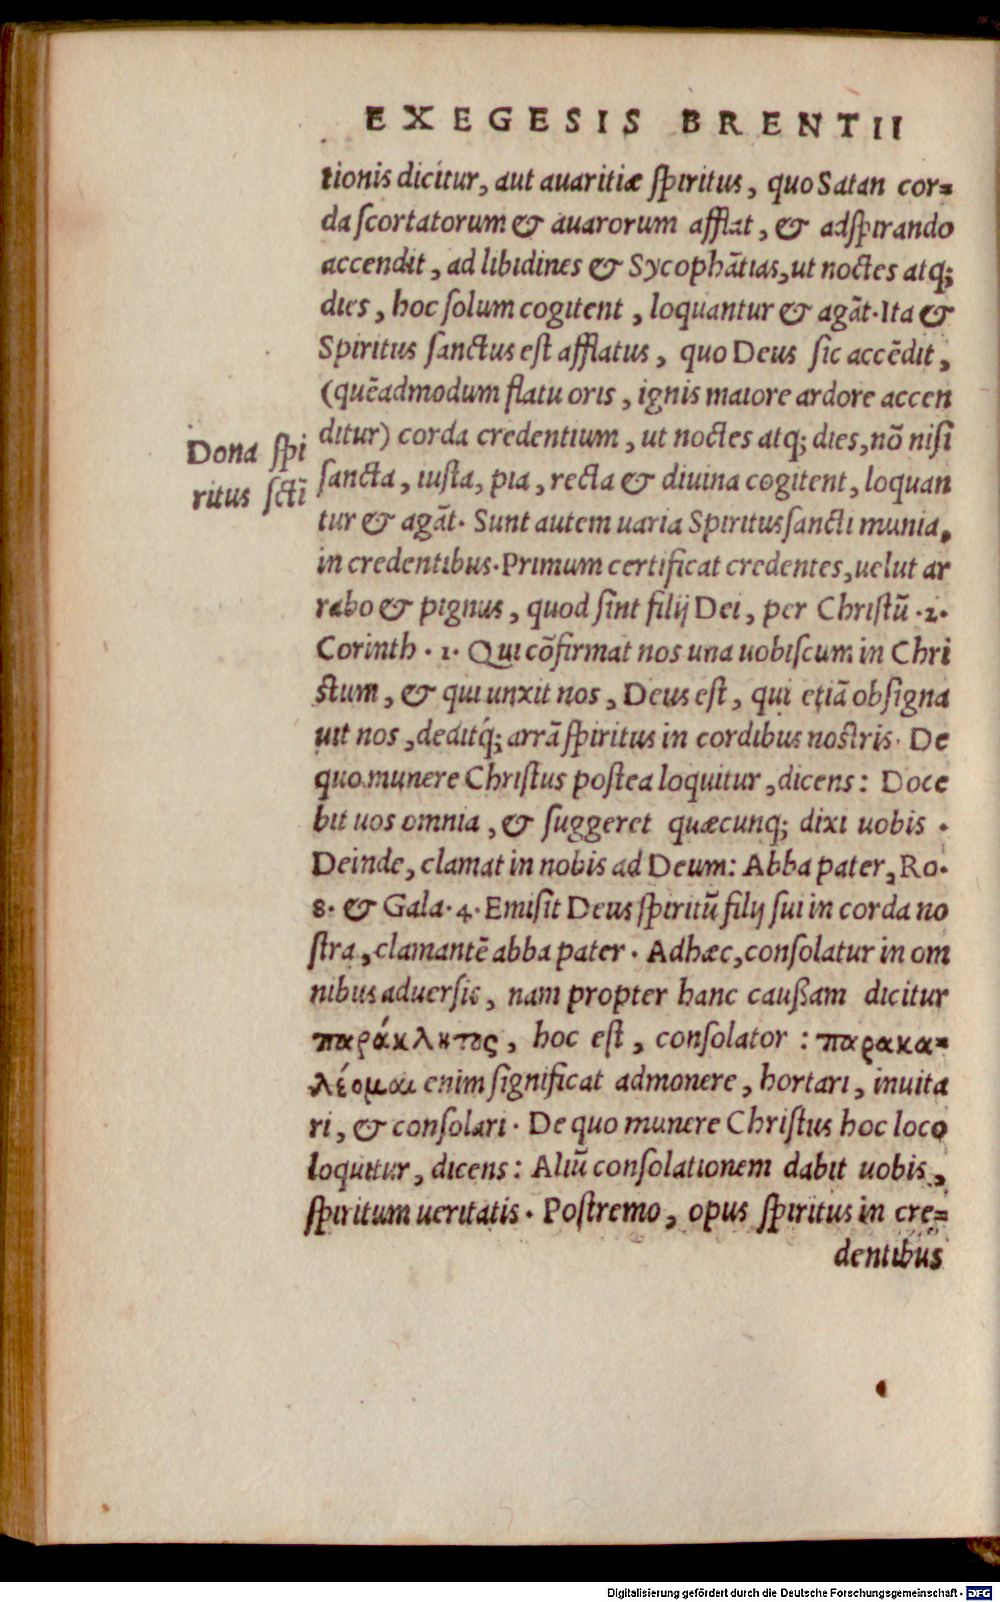 EXEGESIS BRENTII
tionis dicitur, aut auaritiæ ſpiritus, quo Satan cor=
da ſcortatorum & auarorum afflat, & adſpirando
accendit, ad libidines & Sycophātias, ut noctes atq;
dies, hoc ſolum cogitent, loquantur & agāt. Ita &
Spiritus ſanctus eſt afflatus, quo Deus ſic accēdit,
(quēadmodum flatu oris, ignis maiore ardore accen
ditur) corda credentium, ut noctes atq; dies, nō niſi
Dona ſpi
ritus ſctī
ſancta, iuſta, pia, recta & diuina cogitent, loquan
tur & agāt. Sunt autem uaria Spiritusſancti munia,
in credentibus. Primum certificat credentes, uelut ar
rabo & pignus, quod ſint filij Dei, per Chriſtū .2.
Corinth .1. Qui cōfirmat nos una uobiſcum in Chri
ſtum, & qui unxit nos, Deus eſt, qui etiā obſigna
uit nos, deditq́; arrā ſpiritus in cordibus noſtris. De
quo munere Chriſtus poſtea loquitur, dicens: Doce
bit uos omnia, & ſuggeret quæcunq; dixi uobis .
Deinde, clamat in nobis ad Deum: Abba pater, Ro.
8. & Gala. 4. Emiſit Deus ſpiritū filij ſui in corda no
ſtra, clamantē abba pater. Adhæc, conſolatur in om
nibus aduerſis, nam propter hanc cauſſam dicitur
παράκλητος, hoc eſt, conſolator: παρακα=
λέομαι enim ſignificat admonere, hortari, inuita
ri, & conſolari. De quo munere Chriſtus hoc loco
loquitur, dicens: Aliū conſolationem dabit uobis,
ſpiritum ueritatis. Poſtremo, opus ſpiritus in cre=
dentibus
Digitalisierung gefördert durch die Deutsche Forschungsgemeinschaft - DFG